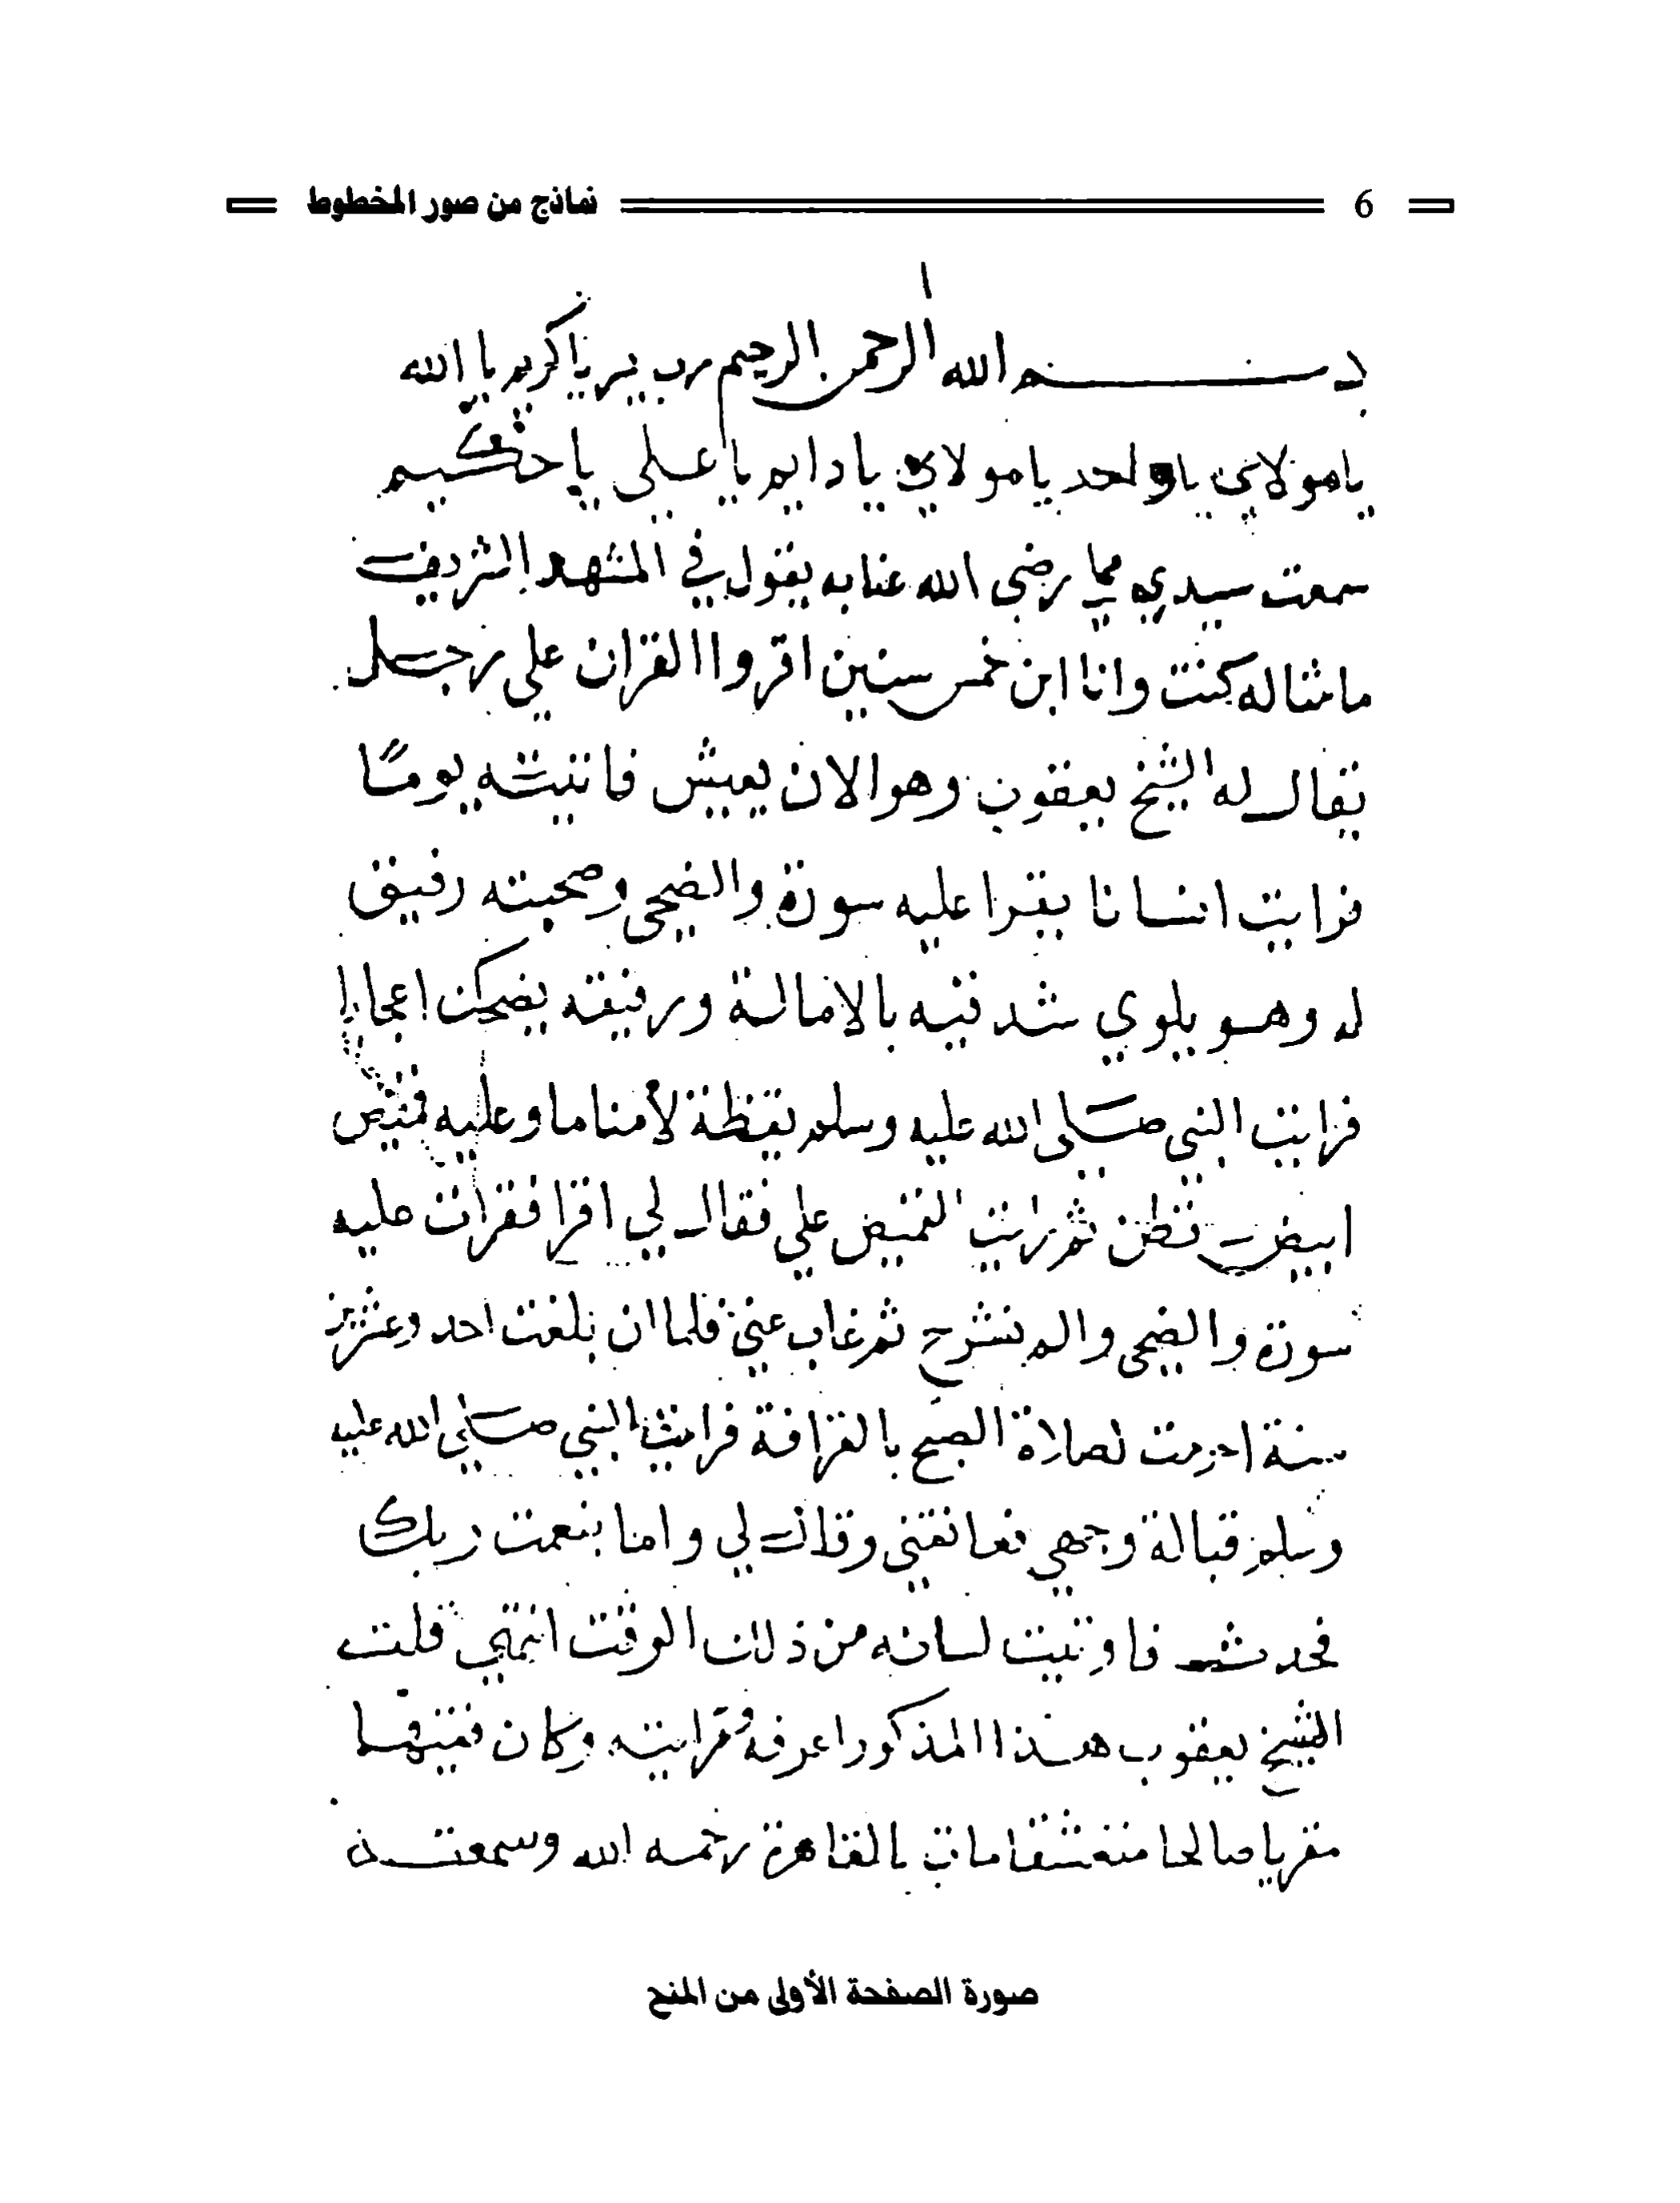 6 نماذج من صور المخطوط
بسم الله الرحمن الرحيم رب يسر يا كريم يا الله
يا مولاي يا واحد يا مولاي يا دايم يا علي يا حكيم
سمعت سيدي رضي الله عنا به يقول في المشهد الشريف
ما مثاله كنت وانا ابن خمس سنين اقروا القران علي رجل
يقال له الشيخ يعقوب وهو الان يعيش فاتيته يوما
فرايت انسانا يقرا عليه سورة والضحى وصحبته رفيق
له وهو يلوي شدقيه بالامالة ورفيقه يضحك اعجابا
فرايت النبي صلى الله عليه وسلم يقظة لا مناما وعليه قميص
ابيض قطن ثم رايت القميص علي فقال لي اقرا فقرات عليه
سورة والضحى والم نشرح ثم غاب عني فلما ان بلغت احد وعشرين
سنة احرمت لصلاة الصبح بالقرافة فرايت النبي صلى الله عليه
وسلم قبالة وجهي فعانقني وقال لي واما بنعمت ربك
فحدث فاوتيت لسانه من ذلك الوقت انتهي قلت
الشيخ يعقوب هذا المذكور اعرفه ورايته وكان فقيها
مقريا صالحا مات بالقاهرة رحمه الله وسمعته
صورة الصفحة الأولى من المنح